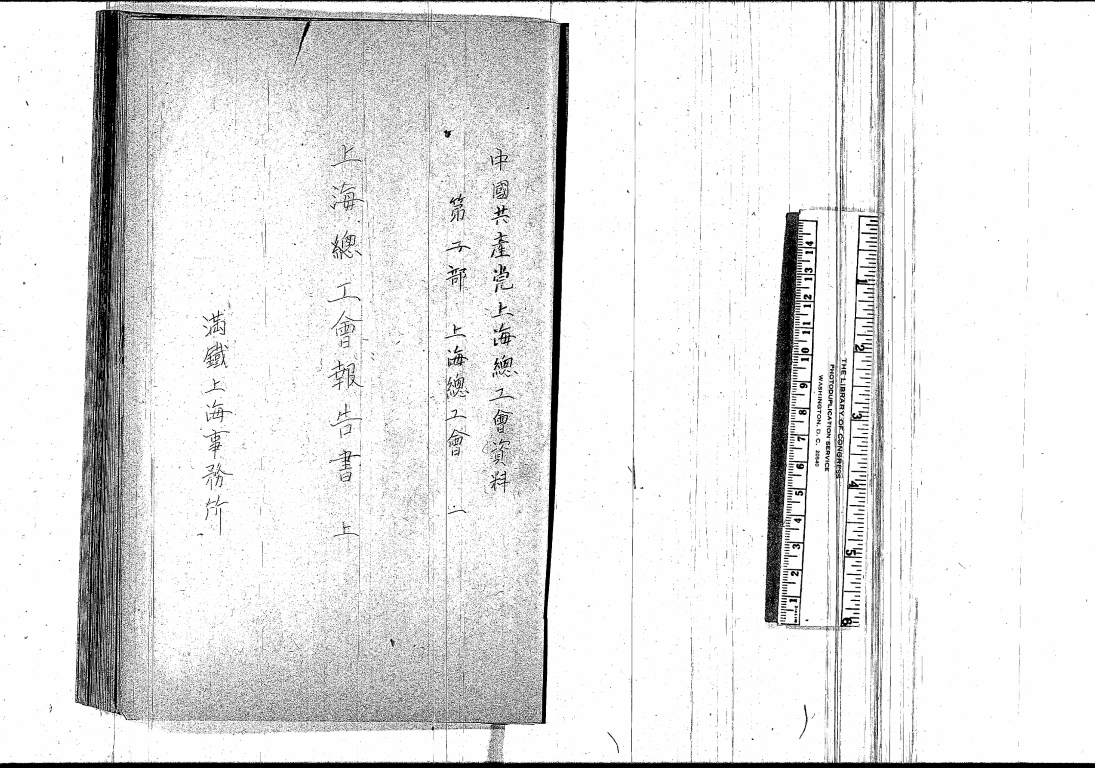 中國共產党上海總工會資料
第二部 上海總工會 二
上海總工會報告書 上
滿鐵上海事務所
THE LIBRARY OF CONGRESS
PHOTODUPLICATION SERVICE
WASHINGTON, D. C. 20540
1 2 3 4 5 6 7 8 9 10 11 12 13 14
1 2 3 4 5 6